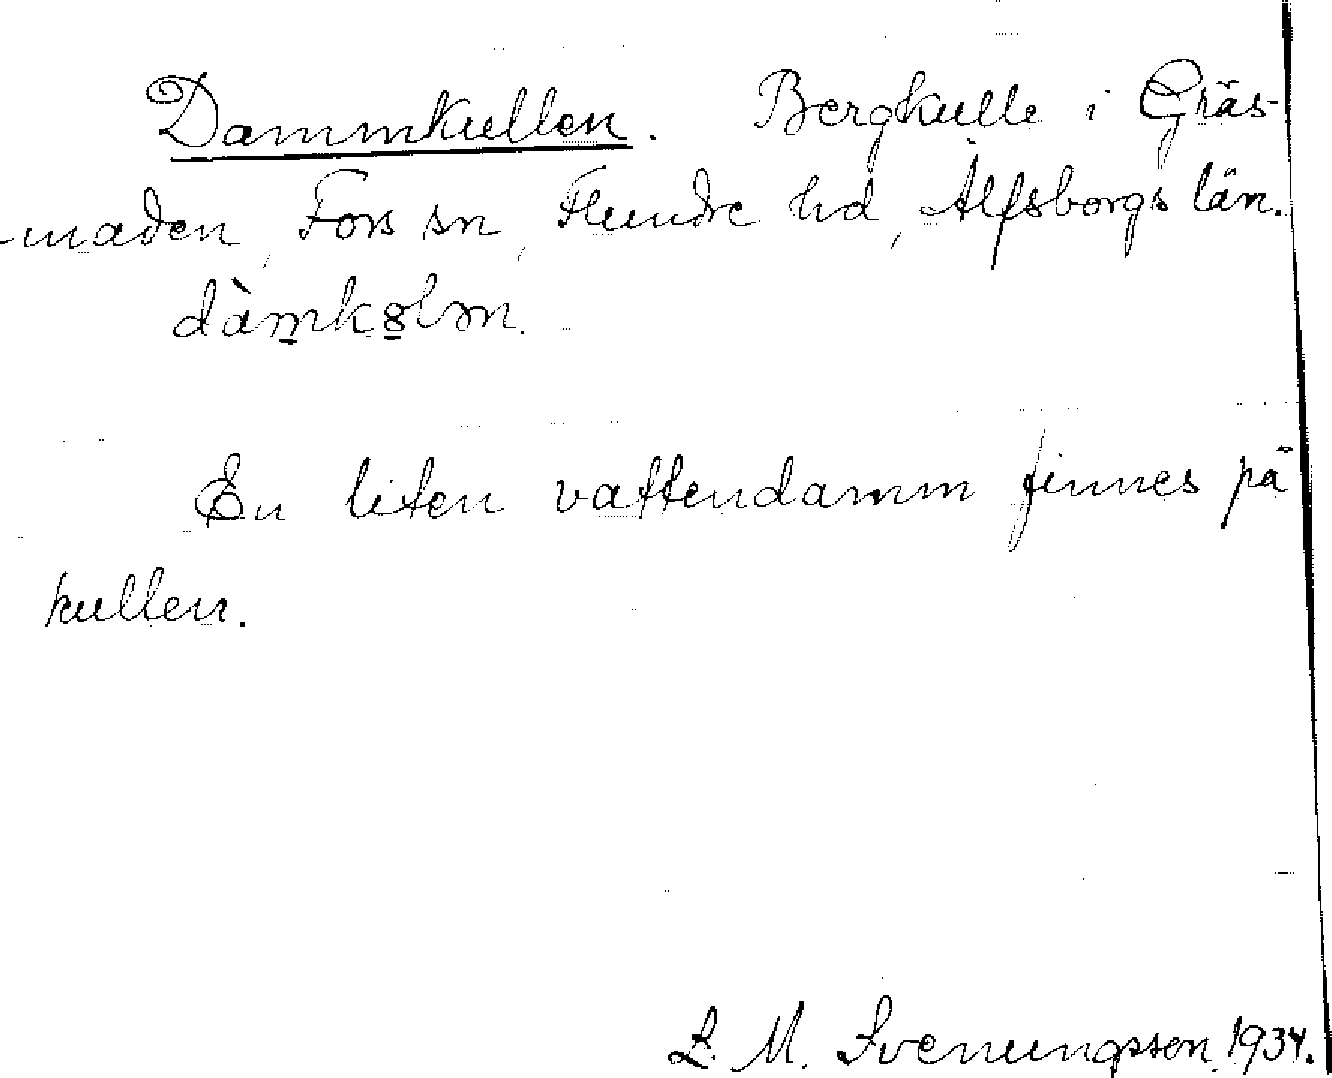 Dammkullen. Bergkulle i Gräs-
maden, Fors sn, Flundre hd, Älfsborgs län.
dàmkȣlən.
En liten vattendamm finnes på
kullen.
L. M. Svenungsson 1934.